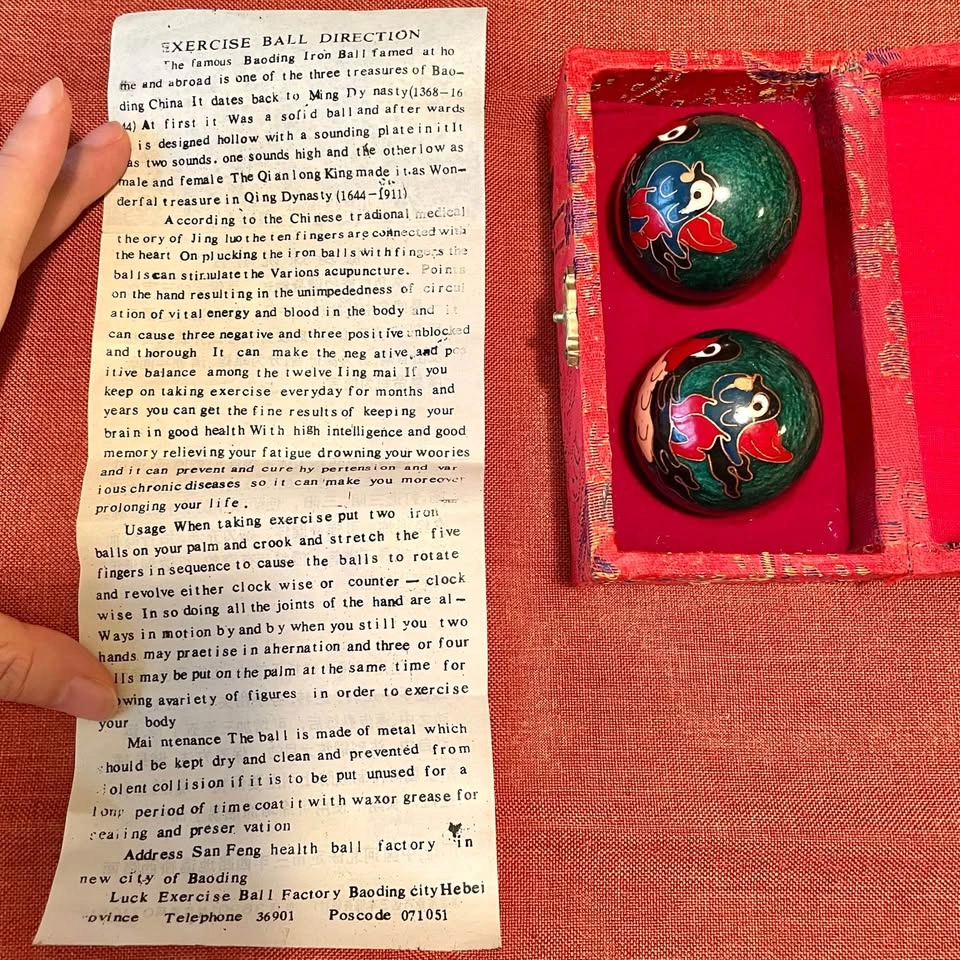 EXERCISE BALL DIRECTION
The famous Baoding Iron Ball famed at ho
me and abroad is one of the three treasures of Bao-
ding China It dates back to Ming Dy nasty(1368-16
44) At first it Was a solid ball and after wards
is designed hollow with a sounding plate in it It
as two sounds. one sounds high and the other low as
male and female The Qian long King made it as Won-
derful treasure in Qing Dynasty (1644-1911)
According to the Chinese tradional medical
the ory of Jing luo the ten fingers are connected with
the heart On plucking the iron balls with fingers the
balls can stimulate the Varions acupuncture. Points
on the hand resulting in the unimpededness of circul
ation of vital energy and blood in the body and it
can cause three negative and three positive unblocked
and thorough It can make the neg ative and pos
itive balance among the twelve Iing mai If you
keep on taking exercise everyday for months and
years you can get the fine results of keeping your
brain in good health With high intelligence and good
memory relieving your fatigue drowning your woories
and it can prevent and cure hy pertension and var
ious chronic diseases so it can make you moreover
prolonging your life.
Usage When taking exercise put two iron
balls on your palm and crook and stretch the five
fingers in sequence to cause the balls to rotate
and revolve either clock wise or counter — clock
wise In so doing all the joints of the hand are al-
Ways in motion by and by when you still you two
hands may praetise in ahernation and three or four
lls may be put on the palm at the same time for
owing avariety of figures in order to exercise
your body
Mai ntenance The ball is made of metal which
hould be kept dry and clean and prevented from
iolent collision if it is to be put unused for a
long period of time coat it with waxor grease for
sealing and preser vation
Address San Feng health ball factory in
new city of Baoding
Luck Exercise Ball Factory Baoding city Hebei
ovince Telephone 36901 Poscode 071051